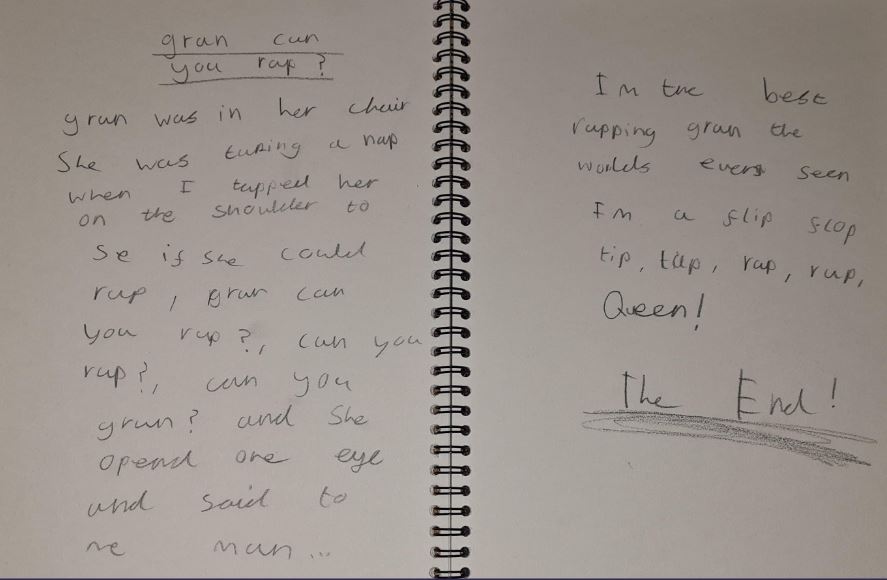 gran can
you rap?
gran was in her chair
She was taking a nap
when I tapped her
on the shoulder to
se if she could
rap, gran can
you rap?, can you
rap?, can you
gran? and She
opend one eye
and said to
me man...
I'm the best
rapping gran the
worlds ever seen
I'm a flip flop
tip, tap, rap, rap,
Queen!
The End!